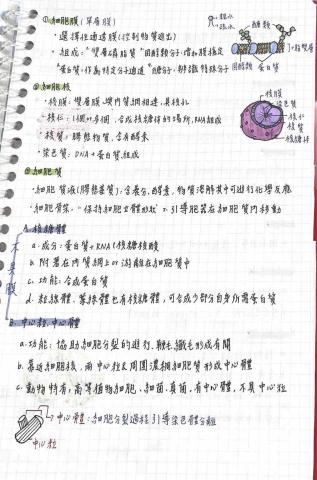 ①細胞膜(單層膜)
・選擇性通透膜(控制物質進出)
・組成:"雙層磷脂質"固醇類分子:增加膜穩定
"蛋白質:作為特定分子通道"醣分子:辨識特殊分子
親水
疏水
醣類
脂雙層
固醇類
蛋白質
②細胞核
・核膜:雙層膜,與內質網相連,具核孔
・核仁:1個or多個,合成核糖體的場所,RNA組成
・核質:膠態物質,含有酵素
・染色質:DNA+蛋白質組成
核膜
染色質
核仁
核質
核糖體
③細胞質
・細胞質液(膠態基質):含養分,酵素,物質溶解其中可進行化學反應
・細胞骨架:"保持細胞立體形狀"引導胞器在細胞質內移動
不具膜
A. 核糖體
a. 成分:蛋白質+RNA(核糖核酸
b. 附著在內質網上or游離在細胞質中
c. 功能:合成蛋白質
d. 粒線體、葉綠體也有核糖體,可合成少部分自身所需蛋白質
B. 中心粒,中心體
a. 功能:協助細胞分裂的進行,鞭毛纖毛形成有關
b. 靠近細胞核,兩中心粒&周圍濃稠細胞質形成中心體
c. 動物特有,高等植物細胞、細菌、真菌,有中心體,不具中心粒
中心體:細胞分裂過程引導染色體分離
中心粒